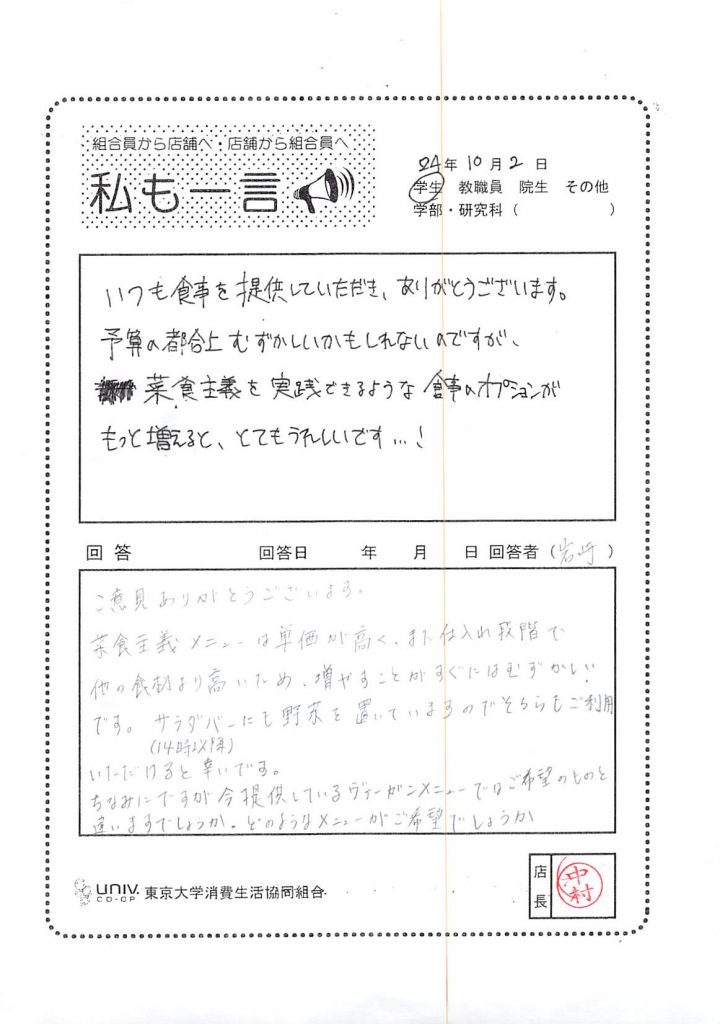 組合員から店舗へ・店舗から組合員へ
私も一言
24年10月2日
学生 教職員 院生 その他
学部・研究科( )
いつも食事を提供していただき、ありがとうございます。
予算の都合上むずかしいかもしれないのですが、
菜食主義を実践できるような食事のオプションが
もっと増えると、とてもうれしいです…!
回答 回答日 年 月 日 回答者(岩崎)
ご意見ありがとうございます。
菜食主義メニューは単価が高く、また仕入れ段階で
他の食材より高いため、増やすことがすぐにはむずかしい
です。サラダバーにも野菜を置いていますのでそちらもご利用
(14時以降)
いただけると幸いです。
ちなみにですが今提供しているヴィーガンメニューではご希望のものと
違いますでしょうか。どのようなメニューがご希望でしょうか
UNIV. CO-OP 東京大学消費生活協同組合
店長
中村